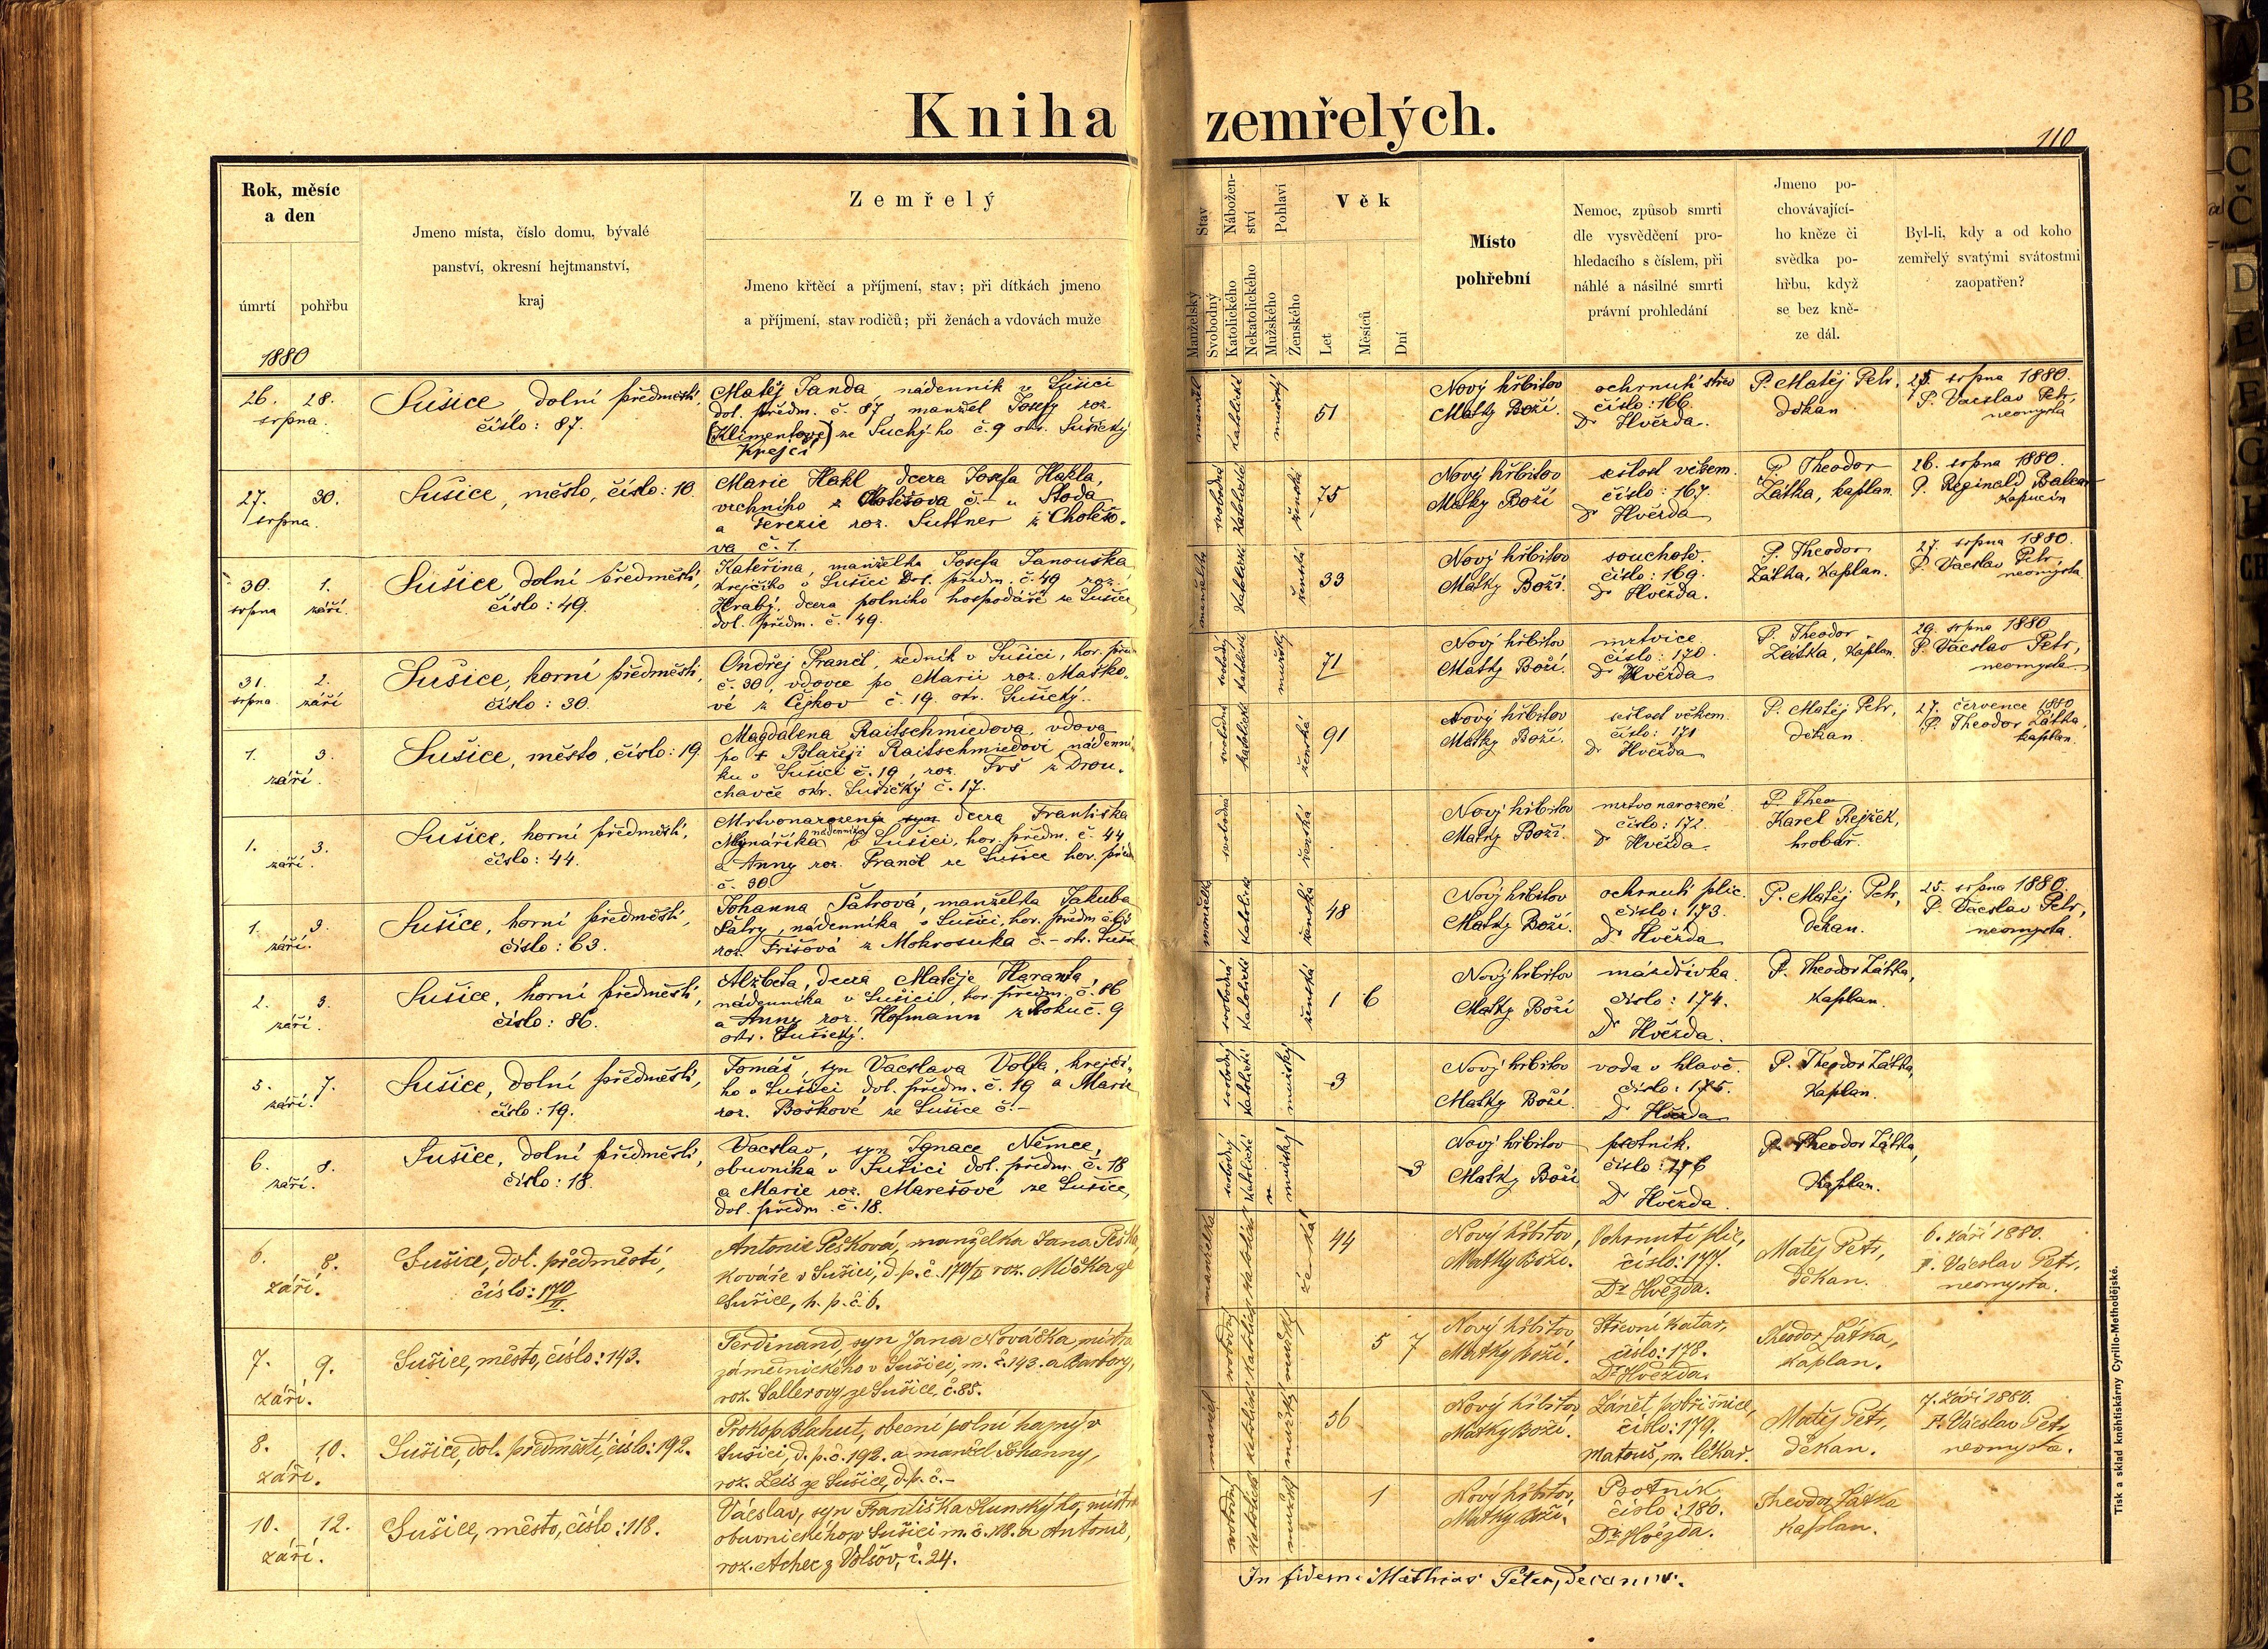 Kniha zemřelých.
110
Rok, měsíc
a den
úmrtí pohřbu
1880
Jmeno místa, číslo domu, bývalé
panství, okresní hejtmanství,
kraj
Zemřelý
Jmeno křtěcí a příjmení, stav; při dítkách jmeno
a příjmení, stav rodičů; při ženách a vdovách muže
Stav
Manželský
Svobodný
Nábožen-
ství
Katolického
Nekatolického
Pohlaví
Mužského
Ženského
Věk
Let
Měsíců
Dní
Místo
pohřební
Nemoc, způsob smrti
dle vysvědčení pro-
hledacího s číslem, při
náhlé a násilné smrti
právní prohledání
Jmeno po-
chovávající-
ho kněze či
svědka po-
hřbu, když
se bez kně-
ze dál.
Byl-li, kdy a od koho
zemřelý svatými svátostmi
zaopatřen?
26. 28.
srpna.
Sušice, dolní předměstí,
číslo: 87.
Matěj Janda, nádenník v Sušici
dol. předm. č. 87, manžel Josefy roz.
(Klimentové) ze Suchý-ho č. 9 okr. Sušický
Krejčí
manžel
katolické
mužský
51
Nový hřbitov
Matky Boží.
ochrnutí střev
číslo: 166.
Dr Hvězda.
P. Matěj Petr,
děkan
25. srpna 1880.
P. Vácslav Petr,
neomysta
27. 30.
srpna.
Sušice, město, číslo: 10.
Marie Hakl, dcera Josefa Hakla,
vrchního z Chotěšova č. – u Stoda
a Terezie roz. Suttner z Chotěšo-
va č. 1.
svobodná
katolické
ženská
75
Nový hřbitov
Matky Boží
sešlost věkem.
číslo: 167.
Dr Hvězda
P. Theodor
Zátka, kaplan.
26. srpna 1880.
P. Reginald
kapucín
30. 1.
srpna září.
Sušice, dolní předměstí,
číslo: 49.
Kateřina, manželka Josefa Janouška
krejčího v Sušici dol. předm. č. 49 roz.
Hrabý, dcera polního hospodáře ze Sušice
dol. předm. č. 49.
manželka
katolické
ženská
33
Nový hřbitov
Matky Boží.
souchotě.
číslo: 169.
Dr Hvězda.
P. Theodor
Zátka, kaplan.
27. srpna 1880.
P. Vácslav Petr
neomysta.
31. 2.
srpna září
Sušice, horní předměstí,
číslo: 30.
Ondřej Prančl, zedník v Sušici, hor. pře
č. 30, vdovec po Marii roz. Maško-
vé z Čejkov č. 19 okr. Sušický.
svobodný
katolické
mužský
71
Nový hřbitov
Matky Boží.
mrtvice.
číslo: 170.
Dr Hvězda
P. Theodor
Zátka, kaplan.
29. srpna 1880
P. Vácslav Petr,
neomysta
1. 3.
září.
Sušice, město, číslo: 19
Magdalena Raitschmiedova, vdova
po † Blažeji Raitschmiedovi nádenní-
ku v Sušici č. 19, roz. z Drou-
chavče okr. Sušický č. 17.
svobodná
katolické
ženská
91
Nový hřbitov
Matky Boží.
sešlost věkem.
číslo: 171
Dr Hvězda
P. Matěj Petr,
děkan
27. července 1880
P. Theodor Zátka,
kaplan.
1. 3.
září.
Sušice, horní předměstí,
číslo: 44.
Mrtvonarozená syn dcera Františka
Mlynaříka nádenníka v Sušici, hor. předm. č. 44
a Anny roz. Prančl ze Sušice hor. předm
č. 30.
svobodná
ženská
Nový hřbitov
Matky Boží.
mrtvo narozené
číslo: 172.
Dr Hvězda.
P. Theo
Karel Rejžek,
hrobař.
1. 3.
září.
Sušice, horní předměstí,
číslo: 63.
Johanna Šatrová, manželka Jakuba
Šatry, nádenníka v Sušici, hor. předm č. 63
roz. Frišová z Mokrosuka č. – okr. Suši
manželka
katolické
ženská
48
Nový hřbitov
Matky Boží.
ochrnutí plic.
číslo: 173.
Dr Hvězda
P. Matěj Petr,
děkan.
25. srpna 1880.
P. Vácslav Petr,
neomysta.
2. 3.
září.
Sušice, horní předměstí,
číslo: 86.
Alžběta, dcera Matěje Haranta,
nádenníka v Sušici, hor. předm. č. 86
a Anny roz. Hofmann z Roku č. 9
okr. Sušický.
svobodná
katolické
ženská
1 6
Nový hřbitov
Matky Boží
mázdřivka.
číslo: 174.
Dr Hvězda.
P. Theodor Zátka,
kaplan.
5. 7.
září.
Sušice, dolní předměstí,
číslo: 19.
Tomáš, syn Vacslava Volfa, krejčí-
ho v Sušici dol. předm. č. 19 a Marie
roz. Boškové ze Sušice č. –
svobodný
katolické
mužský
3
Nový hřbitov
Matky Boží.
voda v hlavě.
číslo: 175.
Dr Hvězda
P. Theodor Zátka,
kaplan.
6. 8.
září.
Sušice, dolní předměstí,
číslo: 18.
Vacslav, syn Ignace Němce,
obuvníka v Sušici dol. předm. č. 18
a Marie roz. Marešové ze Sušice,
dol. předm. č. 18.
svobodný
katolické
mužský
3
Nový hřbitov
Matky Boží
psotník.
číslo: 176
Dr Hvězda
P. Theodor Zátka,
kaplan.
6. 8.
září.
Sušice, dol. předměstí,
číslo: 170/II.
Antonie Pešková, manželka Jana Pešk
kováře v Sušici, d. p. č. 170/II roz. Mička ze
Sušice, h. p. č. 6.
manželka
katolické
ženská
44
Nový hřbitov,
Matky Boží.
Ochrnutí plic,
číslo: 177.
Dr Hvězda.
Matěj Petr,
děkan.
6. září 1880.
P. Vácslav Petr,
neomysta.
7. 9.
září.
Sušice, město, číslo: 143.
Ferdinand, syn Jana Nováčka, mistra
zámečnického v Sušici, m. č. 143. a Barbory,
roz. Sallerovy ze Sušice, č. 85.
svobodný
katolické
mužský
5 7
Nový hřbitov
Matky Boží.
Střevní katar,
číslo: 178.
Dr Hvězda.
Theodor Zátka,
kaplan.
8. 10.
září.
Sušice, dol. předměstí, číslo: 192.
Prokop Blahut, obecní polní hajný v
Sušici, d. p. č. 192. a manžel Johanny,
roz. Leis ze Sušice, d. p. č. –
manžel
katolické
mužský
56
Nový hřbitov
Matky Boží.
Zánět pobřišnice,
číslo: 179.
Matouš, m. lékař.
Matěj Petr,
děkan.
7. září 1880.
P. Vácslav Petr
neomysta.
10. 12.
září.
Sušice, město, číslo: 118.
Václav, syn Františka Kunskýho, mistra
obuvnického v Sušici m. č. 118. a Antonie,
roz. Acher z Volšov, č. 24.
svobodný
katolické
mužský
1
Nový hřbitov,
Matky Boží.
Psotník
číslo: 180.
Dr Hvězda.
Theodor Zátka
kaplan.
In fidem: Mathias Peter, decanus.
Tisk a sklad kněhtiskárny Cyrillo-Methodějské.
A
B
C
Č
D
E
F
G
H
CH